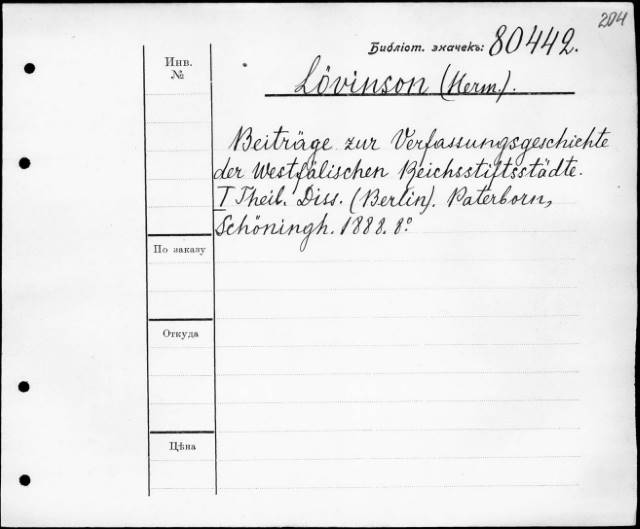 204
Библіот. значекъ: 80442.
Инв.
№
Lövinson (Herm.).
Beiträge zur Verfassungsgeschichte
der Westfälischen Reichsstiftsstädte.
I Theil. Diss. (Berlin). Paterborn,
Schöningh. 1888. 8°
По заказу
Откуда
Цѣна